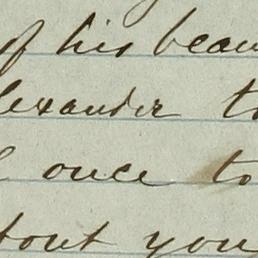 of his beau
lexander to
once to
tout you